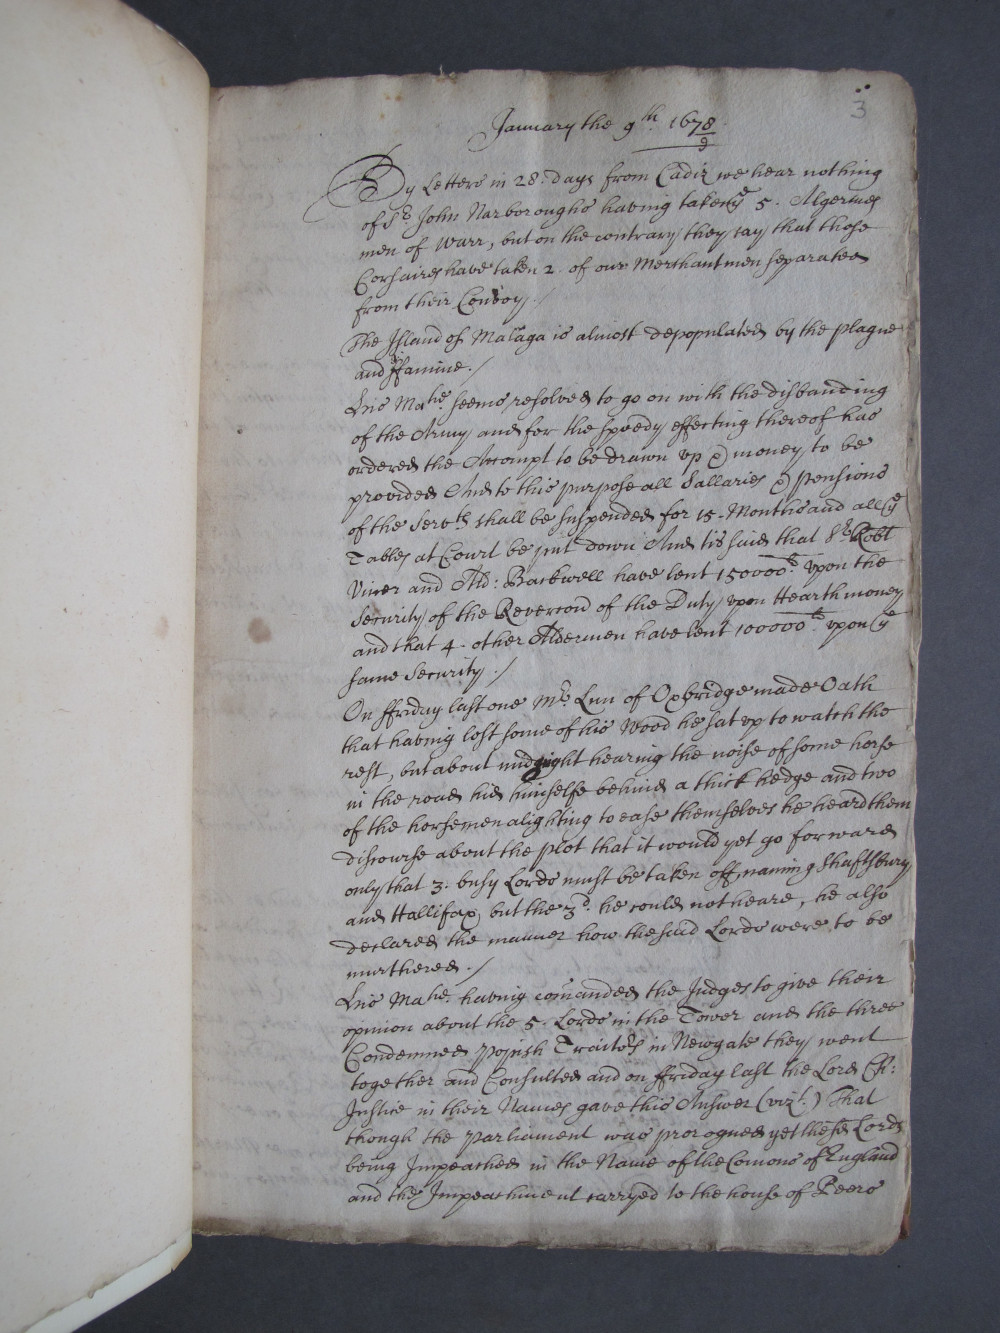 3
January the 9th. 1678/9
By Letters in 28. days from Cadiz we hear nothing
of Sr. John Narboroughs having taken ye 5. Algerines
men of Warr, but on the contrary they say that those
Corsaires have taken 2. of our Merchantmen separated
from their Convoy./
The Island of Malaga is almost depopulated by the plague
and ffamine./
His Matie. seems resolved to go on with the disbanding
of the Army and for the speedy effecting thereof has
ordered the Accompt to be drawn up & money to be
provided And to this purpose all Sallaries & pensions
of the Servts. shall be suspended for 15. Months and all ye
Tables at Court be put down And tis said that Sr. Robt
Viner and Ald: Backwell have lent 150000li. upon the
Security of the Revercon of the Duty upon Hearth money
and that 4. other Aldermen have lent 100000li. upon ye
same Security./
On ffriday last one Mr. Lun of Oxbridge made Oath
that having lost some of his Wood he sat up to watch the
rest, but about midnight hearing the noise of some horse
in the road hid himselfe behind a thick hedge and two
of the horsemen alighting to ease themselves he heard them
discourse about the plot that it would yet go forward
only that 3. busy Lords must be taken off, naming Shaftsbury
and Hallifax, but the 3d. he could not heare, he also
declared the manner how the said Lords were to be
murthered./
His Matie. having comanded the Judges to give their
opinion about the 5. Lords in the Tower and the three
Condemned Popish Traitors in Newgate they went
together and Consulted and on ffriday last the Lord Ch:
Justice in their Names gave this Answer (vizt.) That
though the Parliament was prorogued yet these Lords
being Impeached in the Name of the Comons of England
and the Impeachment carryed to the house of Peers